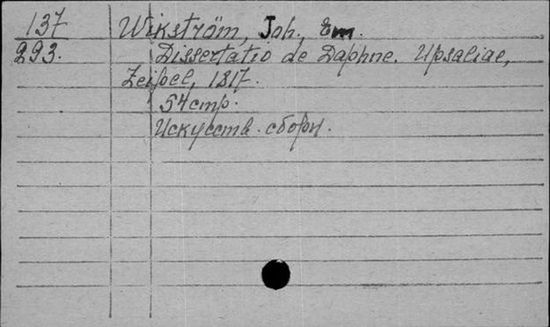 137 Wikström, Joh., Em.
293. Dissertatio de Daphne. Upsaliae,
Zeipel, 1817.
54 стр.
Искусств. сборн.